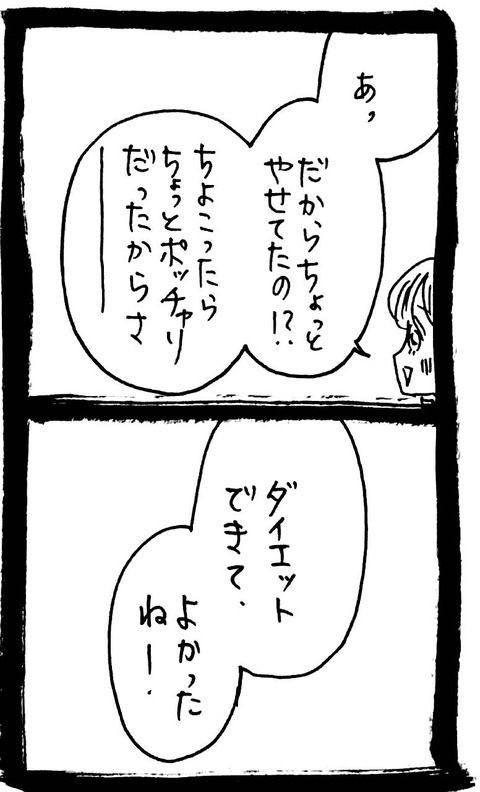 あっ
だからちょっと
やせてたの!?
ちよこったら
ちょっとポッチャリ
だったからさ
――
ダイエット
できて、
よかった
ねー!